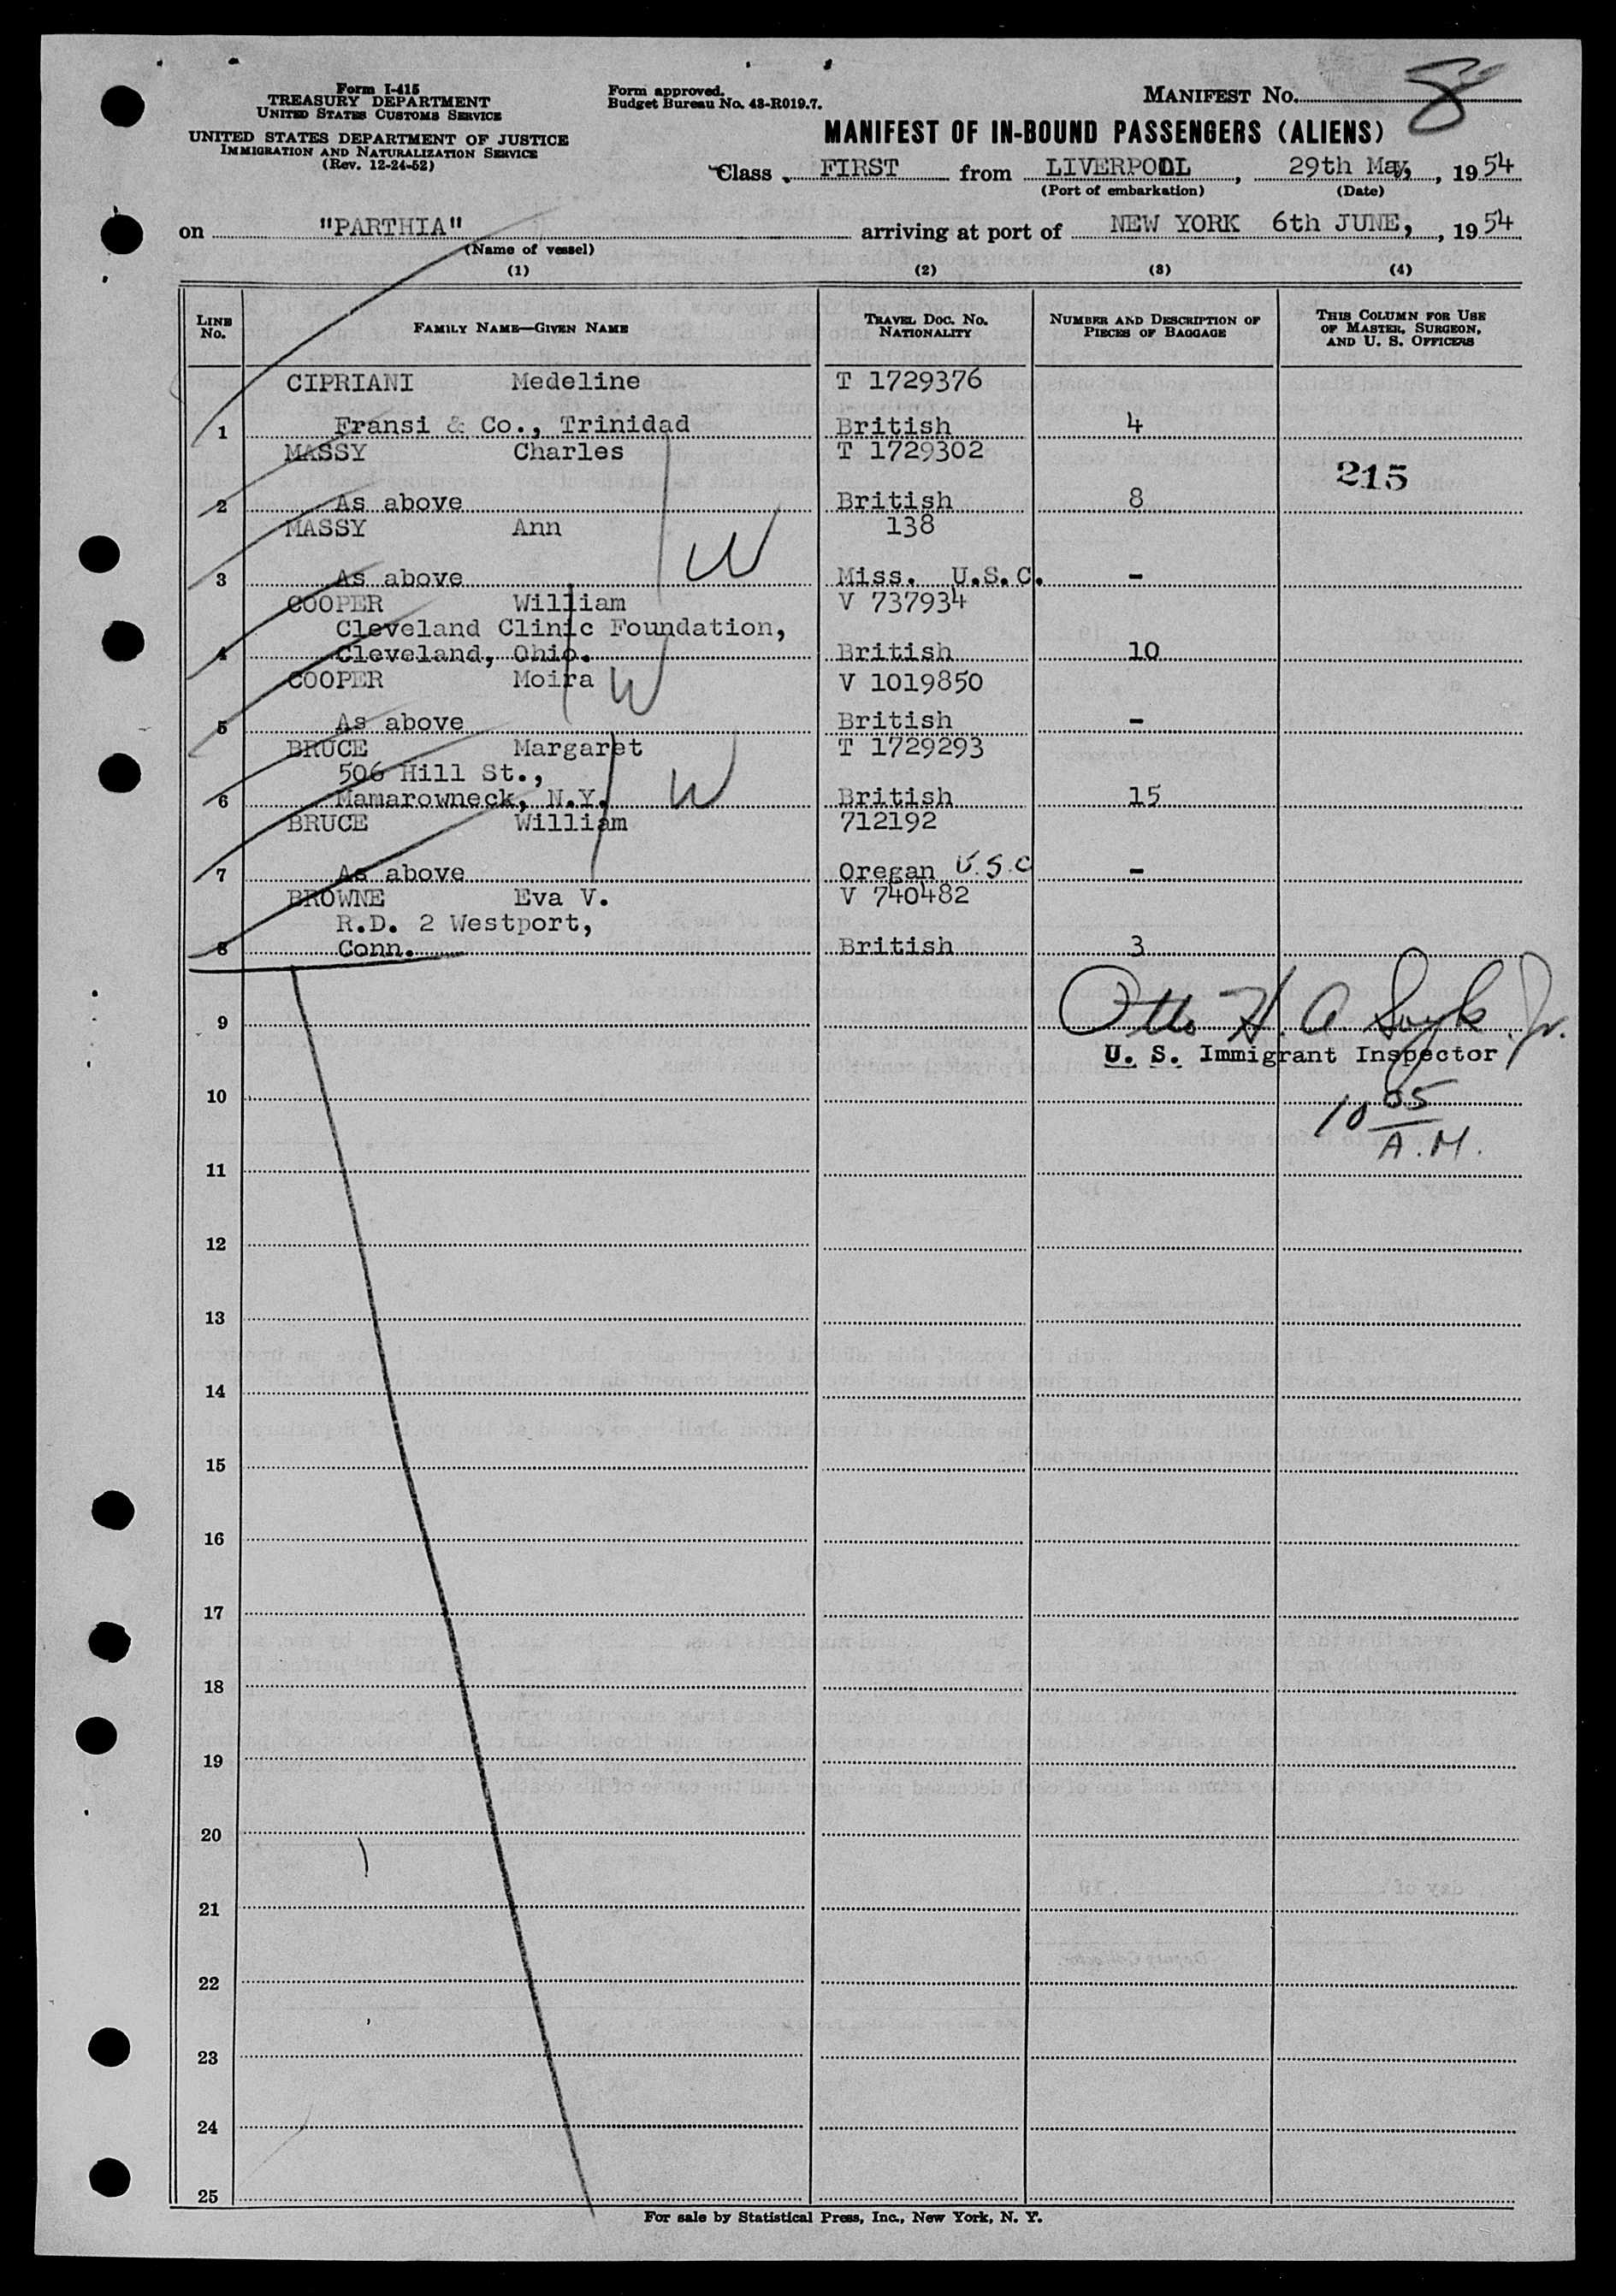 Form I-415
TREASURY DEPARTMENT
UNITED STATES CUSTOMS SERVICE
UNITED STATES DEPARTMENT OF JUSTICE
IMMIGRATION AND NATURALIZATION SERVICE
(Rev. 12-24-52)
Form approved.
Budget Bureau No. 43-R019.7.
MANIFEST No. 8
MANIFEST OF IN-BOUND PASSENGERS (ALIENS)
Class FIRST from LIVERPOOL, 29th May, 1954
(Port of embarkation) (Date)
on "PARTHIA" arriving at port of NEW YORK 6th JUNE, 1954
(Name of vessel)
(1) (2) (3) (4)
LINE No. FAMILY NAME—GIVEN NAME TRAVEL DOC. No. NATIONALITY NUMBER AND DESCRIPTION OF PIECES OF BAGGAGE THIS COLUMN FOR USE OF MASTER, SURGEON, AND U. S. OFFICERS
CIPRIANI Medeline T 1729376
1 Fransi & Co., Trinidad British 4
MASSY Charles T 1729302
215
2 As above British 8
MASSY Ann 138
W
3 As above Miss. U.S.C. -
COOPER William V 737934
Cleveland Clinic Foundation,
4 Cleveland, Ohio. British 10
COOPER Moira W V 1019850
5 As above British -
BRUCE Margaret T 1729293
506 Hill St.,
6 Mamarowneck, N.Y. W British 15
BRUCE William 712192
7 As above Oregan U.S.C -
BROWNE Eva V. V 740482
R.D. 2 Westport,
8 Conn. British 3
9 Otto H. A Jr.
U. S. Immigrant Inspector
10
10 05 A.M.
11
12
13
14
15
16
17
18
19
20
21
22
23
24
25
For sale by Statistical Press, Inc., New York, N. Y.